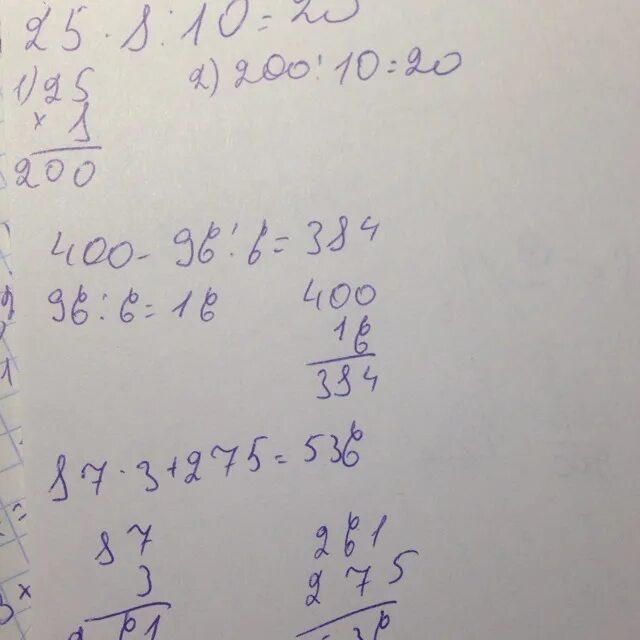 25 · 8 : 10 = 20
1) 25
× 8
200
2) 200 : 10 = 20
400 - 96 : 6 = 384
96 : 6 = 16
400
16
384
87 · 3 + 275 = 536
87
× 3
261
261
275
536